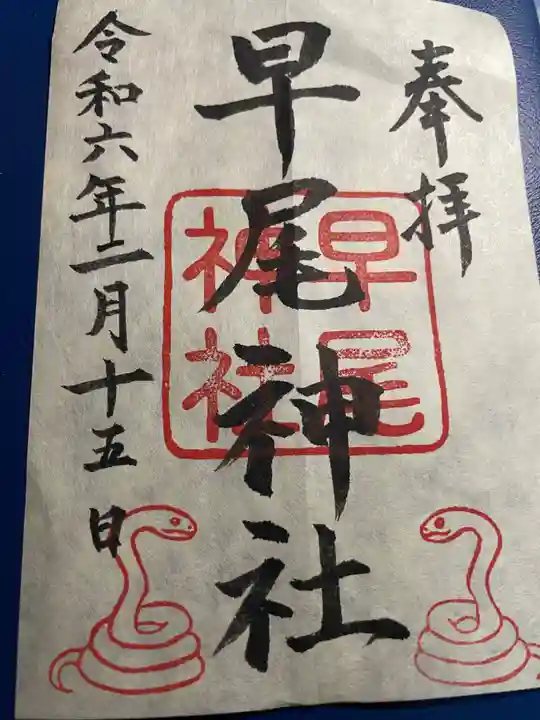 奉拝
早尾神社
早尾
神社
令和六年二月十五日